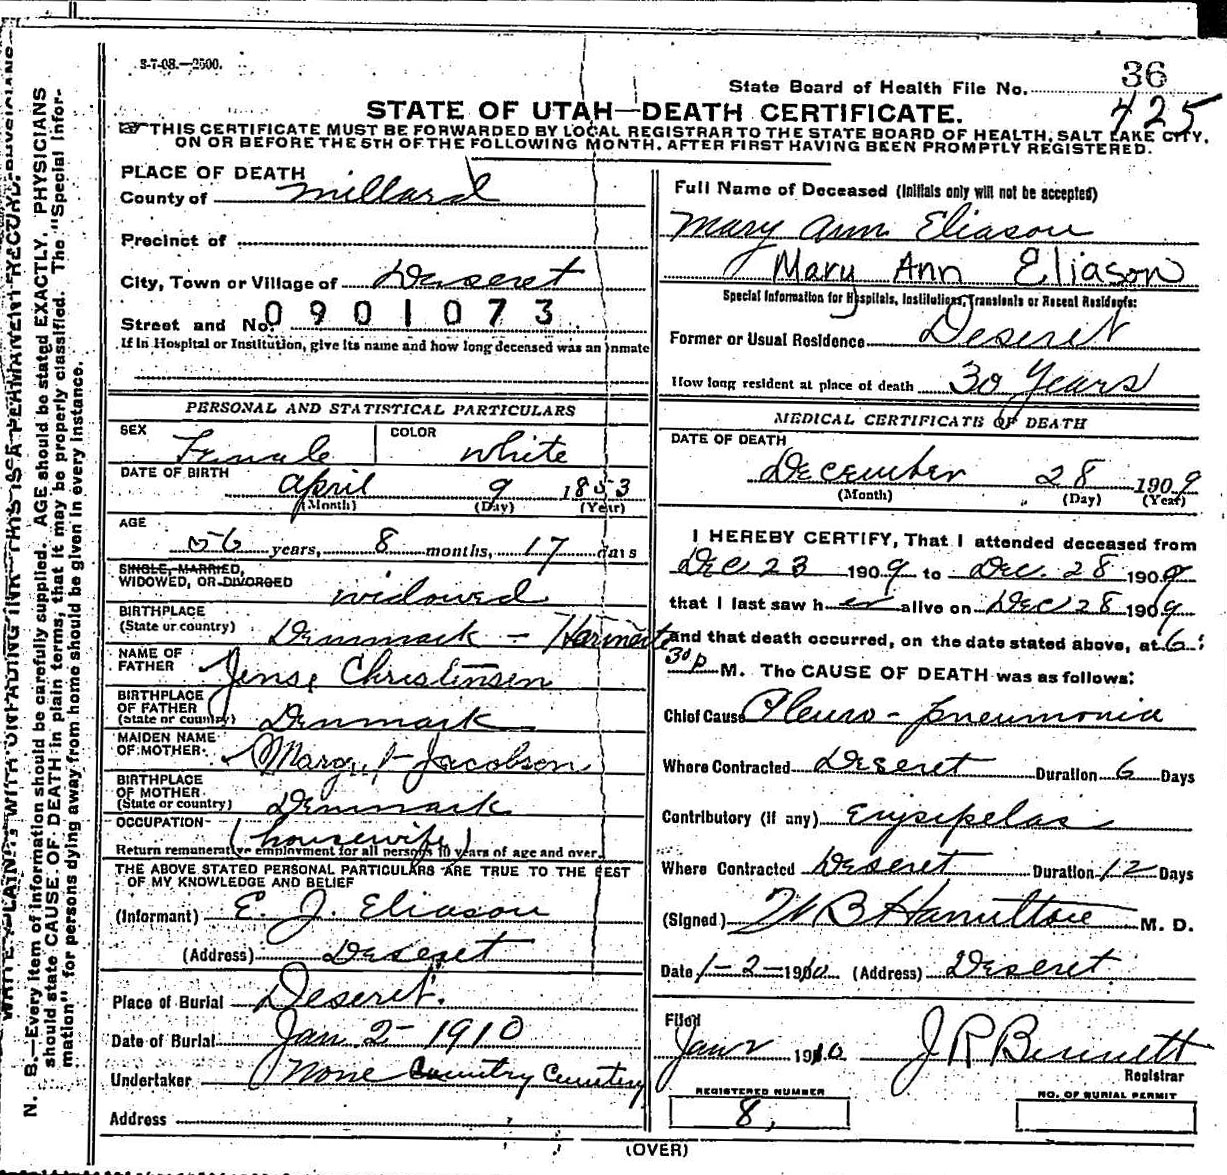 S-7-08.—2500.
State Board of Health File No. 36
425
STATE OF UTAH—DEATH CERTIFICATE.
THIS CERTIFICATE MUST BE FORWARDED BY LOCAL REGISTRAR TO THE STATE BOARD OF HEALTH, SALT LAKE CITY,
ON OR BEFORE THE 5TH OF THE FOLLOWING MONTH, AFTER FIRST HAVING BEEN PROMPTLY REGISTERED.
PLACE OF DEATH
County of Millard
Precinct of
City, Town or Village of Deseret
Street and No. 0901073
If in Hospital or Institution, give its name and how long deceased was an inmate
PERSONAL AND STATISTICAL PARTICULARS
SEX Female COLOR White
DATE OF BIRTH April 9 1853
(Month) (Day) (Year)
AGE 56 years, 8 months, 17 days
SINGLE, MARRIED,
WIDOWED, OR DIVORCED widowed
BIRTHPLACE
(State or country) Denmark –
NAME OF
FATHER Jense Christensen
BIRTHPLACE
OF FATHER
(State or country) Denmark
MAIDEN NAME
OF MOTHER Margret Jacobson
BIRTHPLACE
OF MOTHER
(State or country) Denmark
OCCUPATION (housewife)
Return remunerative employment for all persons 10 years of age and over.
THE ABOVE STATED PERSONAL PARTICULARS ARE TRUE TO THE BEST
OF MY KNOWLEDGE AND BELIEF
(Informant) E. J. Eliason
(Address) Deseret
Place of Burial Deseret.
Date of Burial Jan. 2 – 1910
Undertaker None Country Cemetery
Address
Full Name of Deceased (Initials only will not be accepted)
Mary Ann Eliason
Mary Ann Eliason
Special Information for Hospitals, Institutions, Transients or Recent Residents:
Former or Usual Residence Deseret
How long resident at place of death 30 Years
MEDICAL CERTIFICATE OF DEATH
DATE OF DEATH
December 28 1909
(Month) (Day) (Year)
I HEREBY CERTIFY, That I attended deceased from
Dec 23 1909 to Dec. 28 1909
that I last saw her alive on Dec 28 1909
and that death occurred, on the date stated above, at 6:
30 p M. The CAUSE OF DEATH was as follows:
Chief Cause Pleuro - pneumonia
Where Contracted Deseret Duration 6 Days
Contributory (if any) Erysipelas
Where Contracted Deseret Duration 12 Days
(Signed) W B Hamilton M. D.
Date 1-2-1910 (Address) Deseret
Filed
Jan 2 1910 J R Bennett
Registrar
REGISTERED NUMBER
8,
NO. OF BURIAL PERMIT
(OVER)
WRITE PLAINLY WITH UNFADING INK—THIS IS A PERMANENT RECORD.
N. B.—Every item of information should be carefully supplied. AGE should be stated EXACTLY. PHYSICIANS
should state CAUSE OF DEATH in plain terms, that it may be properly classified. The "Special Infor-
mation" for persons dying away from home should be given in every instance.